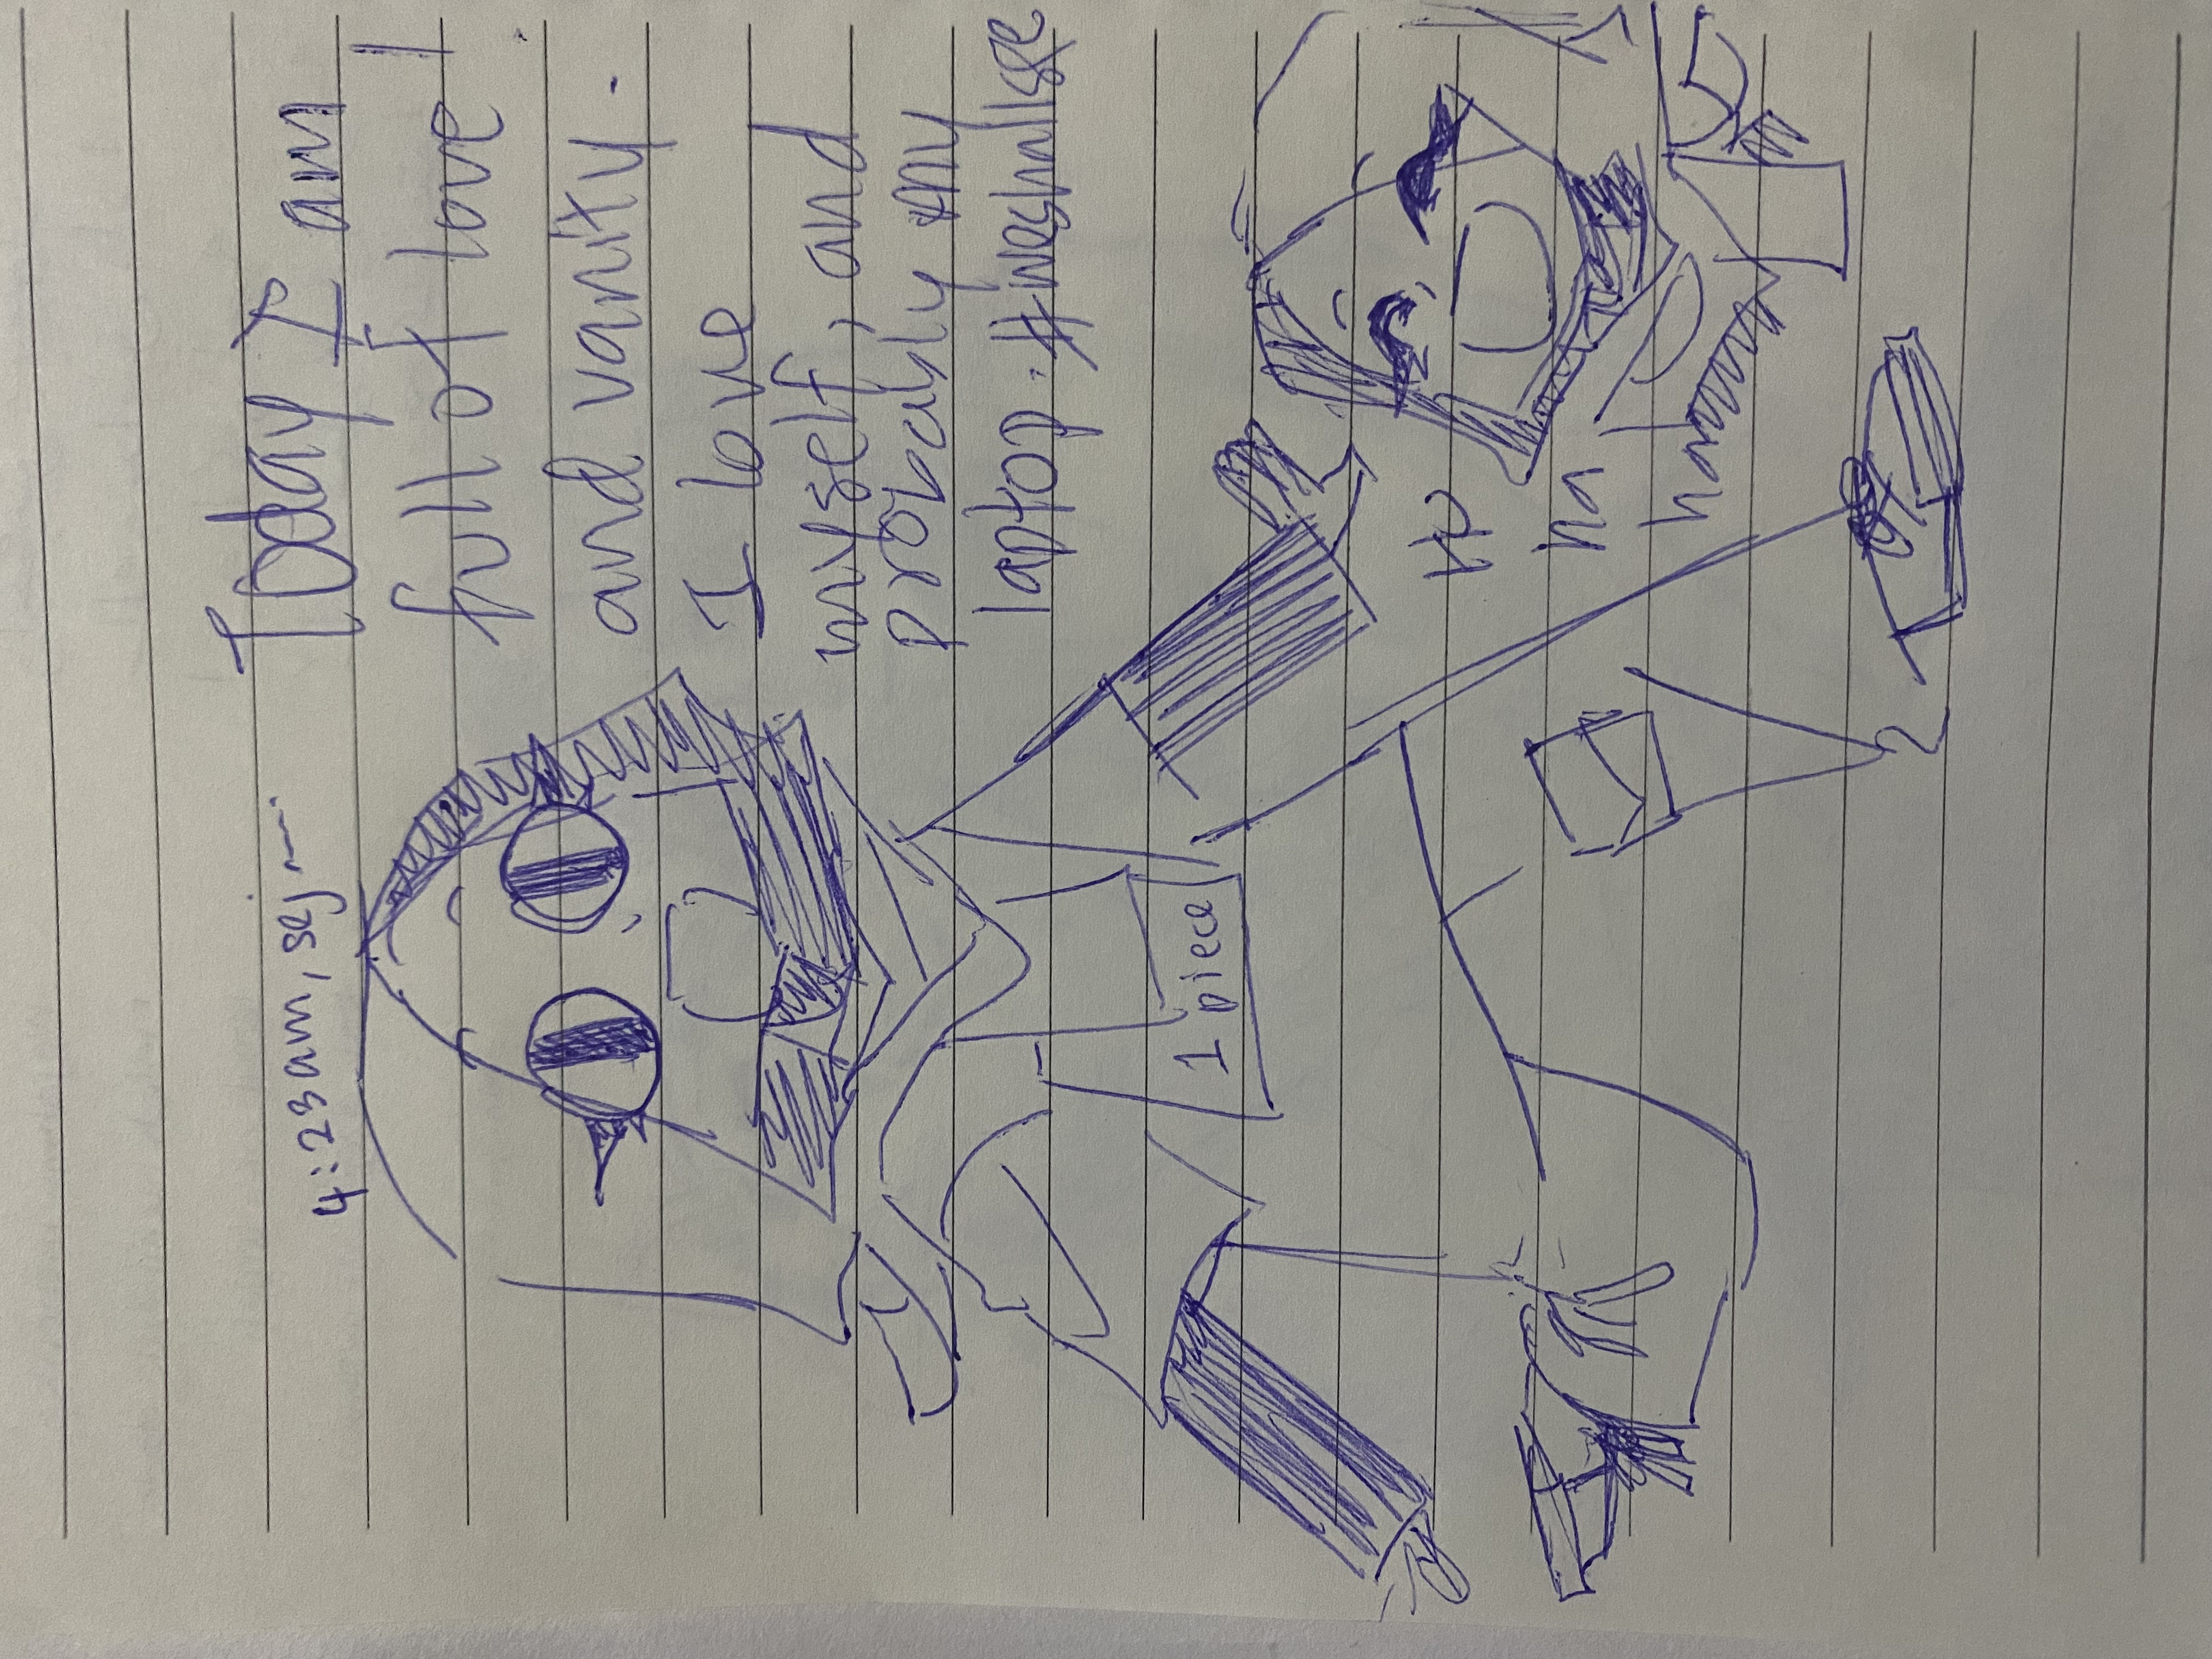 4:23am, sej
Today I am
full of love!
and vanity.
I love
myself, and
probably my
laptop. #weshallsee
1 piece
ha
hah